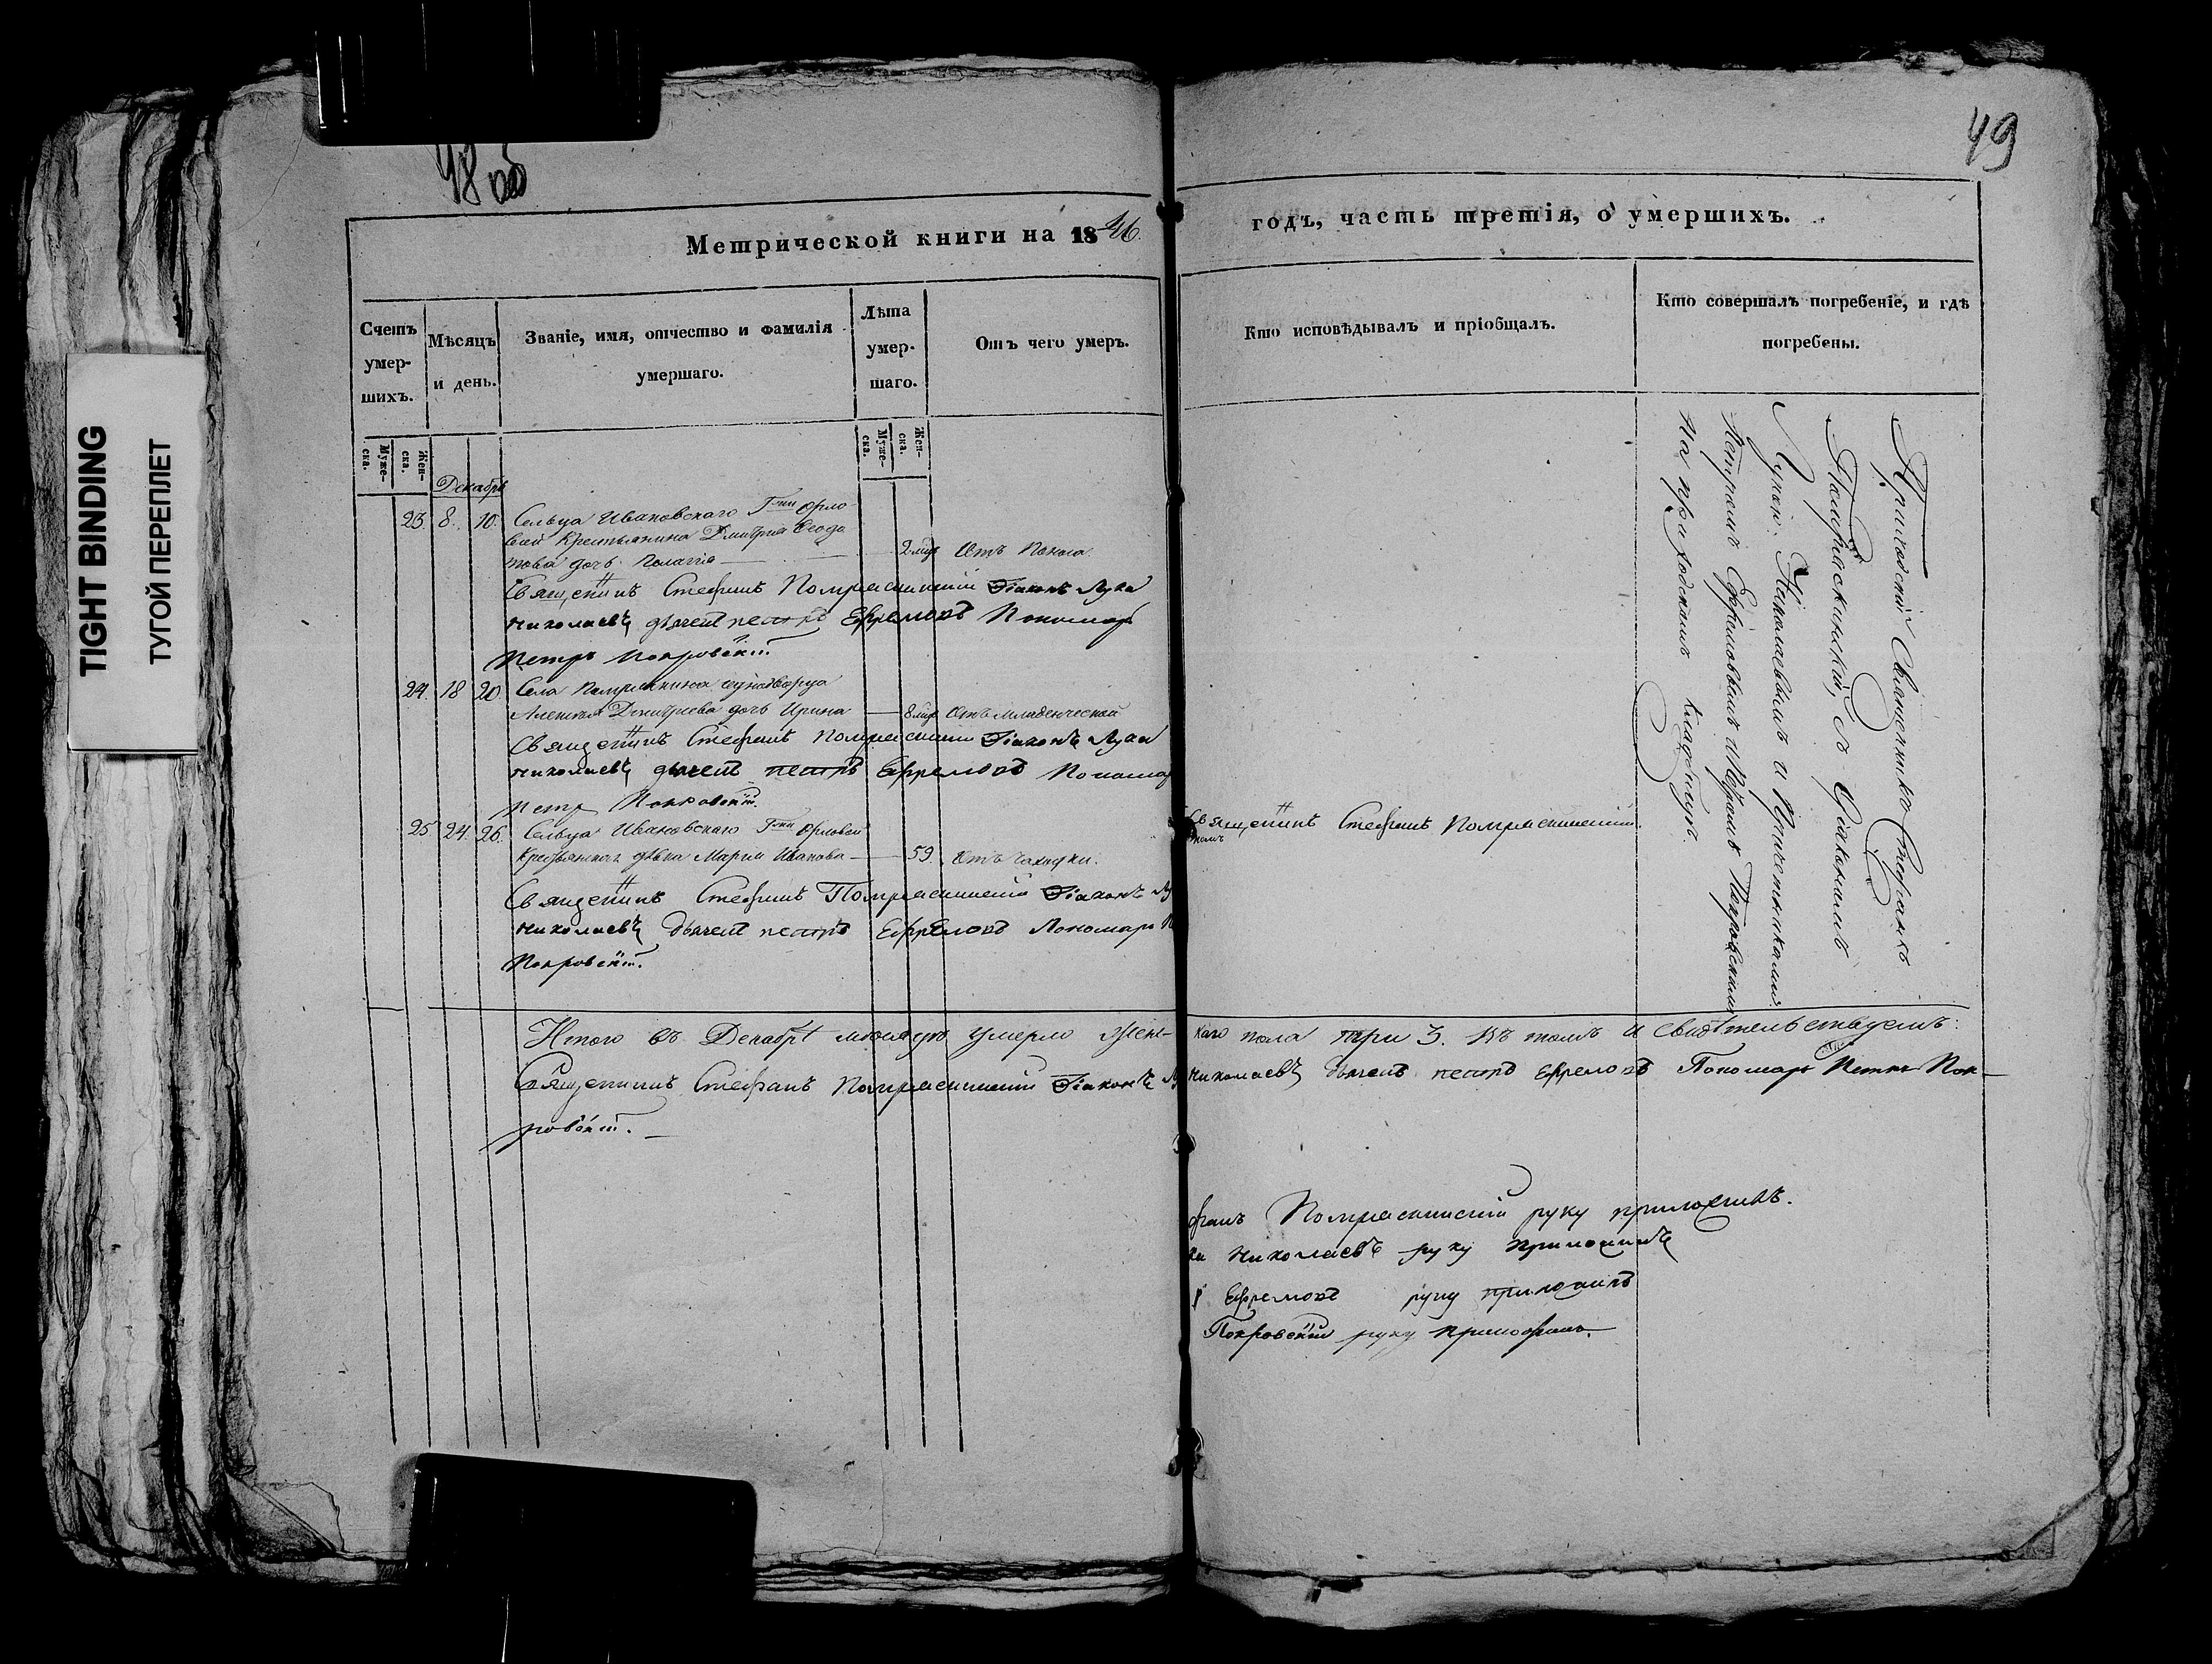 TIGHT BINDING
ТУГОЙ ПЕРЕПЛЕТ
48 об
Метрической книги на 1846.
Счетъ умер-шихъ.
Мѣсяцъ и день.
Званіе, имя, отчество и фамилія
умершаго.
Лѣта умер-шаго.
Отъ чего умеръ.
Муже-ска.
Жен-ска.
Муже-ска.
Жен-ска.
Декабрь
23. 8. 10. Сельца Ивановскаго Гжи Орло-
вой Крестьянина Дмитрія Ѳедо
това дочь Пелагія — 2 мѣс Отъ Поноса.
Священникъ Стефанъ Діаконъ Лука
Николаевъ дьячекъ петръ Ефремовъ Пономарь
Петръ Покровскій
24. 18 20. Села однодворца
Алексѣя Дмитріева дочь Ирина — 8 мѣс Отъ младенческой
Священникъ Стефанъ Діаконъ Лука
Николаевъ дьячекъ петръ Ефремовъ Пономарь
Петръ Покровскій.
25 24. 26. Сельца Ивановскаго Гжи Орловой
Крестьянская дѣвка Марія Иванова — 59. Отъ чахотки.
Священникъ Стефанъ Діаконъ Лу
Николаевъ дьячекъ петръ Ефремовъ Пономарь П
Покровскій.
Итого въ Декабрѣ мѣсяцѣ умерло Жен-
Священникъ Стефанъ Діаконъ Лу
ровскій. —
49
годъ, часть третія, о умершихъ.
Кто исповѣдывалъ и пріобщалъ.
Кто совершалъ погребеніе, и гдѣ
погребены.
Священникъ Стефанъ
Приходскій Священникъ Стефанъ
съ Діакономъ
Лукою Николаевымъ и Причетниками
Петромъ Ефремовымъ и Петромъ Покровскимъ
На приходскомъ кладбищѣ.
каго пола три 3. Въ томъ и свидѣтельствуемъ:
Николаевъ дьячекъ петръ Ефремовъ Пономарь Петръ Пок-
фанъ руку приложилъ.
ка Николаевъ руку приложилъ
Ефремовъ руку приложилъ
Покровскій руку приложилъ.